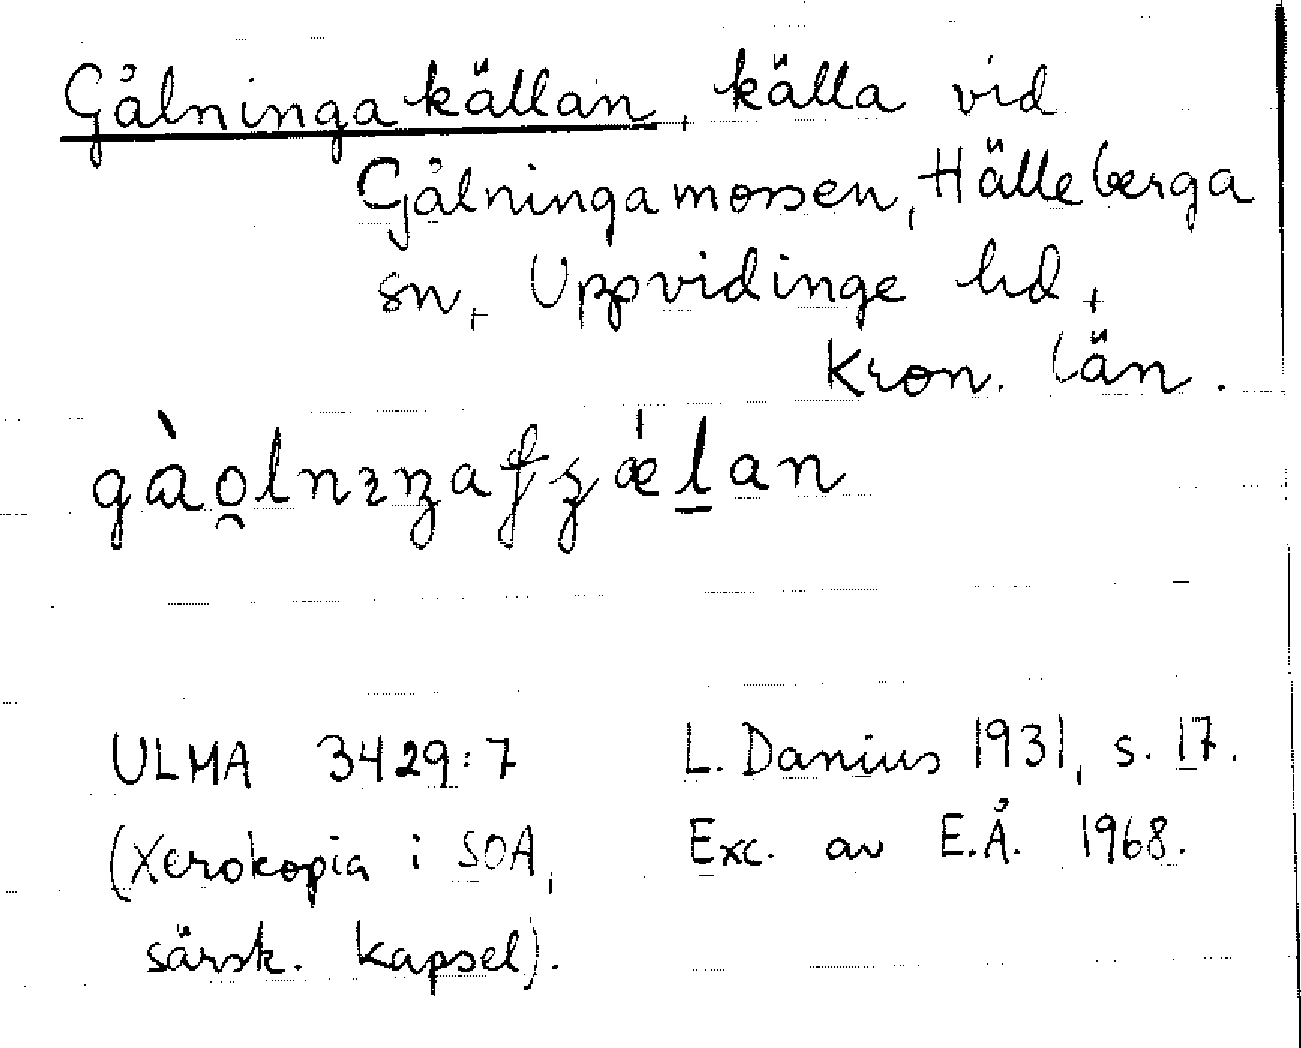 Gålningakällan, källa vid
Gålningamossen, Hälleberga
sn, Uppvidinge hd,
Kron. län.
ULMA 3429:7
(Xerokopia i SOA,
särsk. kapsel).
L. Danius 1931, s. 17.
Exc. av E.Å. 1968.